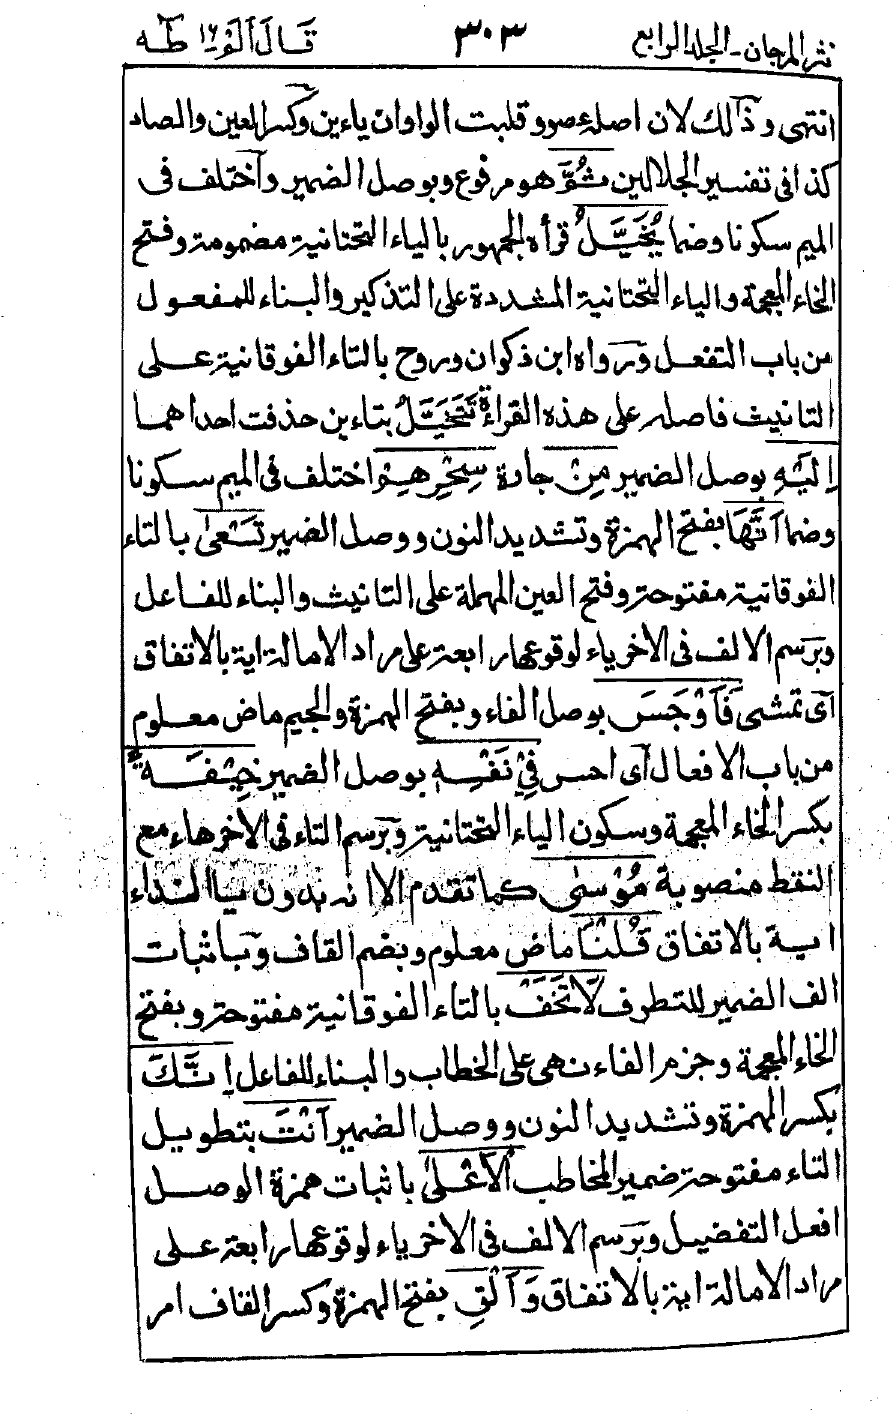 نثر المرجان - الجلد الرابع ٣٠٣ قَالَ أَلَمْ ١٦ طٰهٰ
انتهى وذالك لان اصله عصوو قلبت الواوان ياءين وكسر العين والصاد
كذا فى تفسير الجلالين ثُمَّ هو مرفوع وبوصل الضمير وآختلف فى
الميم سكونا وضما يُخَيَّلُ قرأه الجمهور بالياء التحتانية مضمومة وفتح
الخاء المعجمة والياء التحتانية المشددة على التذكير والبناء للمفعول
من باب التفعل وَرواه ابن ذكوان وروح بالتاء الفوقانية على
التانيث فاصله على هذه القراءة تَتَخَيَّلُ بتاءين حذفت احداهما
إِلَيْهِ بوصل الضمير مِنْ جارة سِحْرِهِمْ اختلف فى الميم سكونا
وضما أَنَّهَا بفتح الهمزة وتشديد النون ووصل الضمير تَسْعىٰ بالتاء
الفوقانية مفتوحة وفتح العين المهملة على التانيث والبناء للفاعل
وبَرسم الالف فى الاخر ياء لوقوعها رابعة على مراد الامالة اية بالاتفاق
آى تمشى فَأَوْجَسَ بوصل الفاء وبفتح الهمزة والجيم ماض معلوم
من باب الافعال آى احس فِيْ نَفْسِهٖ بوصل الضمير خِيْفَةً
بكسر الخاء المعجمة وسكون الياء التحتانية وبَرسم التاء فى الاخر هاء مع
النقط منصوبة مُوْسىٰ كما تقدم الا انه بدون يا النداء
اية بالاتفاق قُلْنَا ماض معلوم وبضم القاف وَباثبات
الف الضمير للتطرف لَا تَخَفْ بالتاء الفوقانية مفتوحة وبفتح
الخاء المعجمة وجزم الفاء نهى على الخطاب والبناء للفاعل إِنَّكَ
بكسر الهمزة وتشديد النون ووصل الضمير أَنْتَ بتطويل
التاء مفتوحة ضمير المخاطب الْأَعْلىٰ باثبات همزة الوصل
افعل التفضيل وبَرسم الالف فى الاخر ياء لوقوعها رابعة على
مراد الامالة اية بالاتفاق وَأَلْقِ بفتح الهمزة وكسر القاف امر